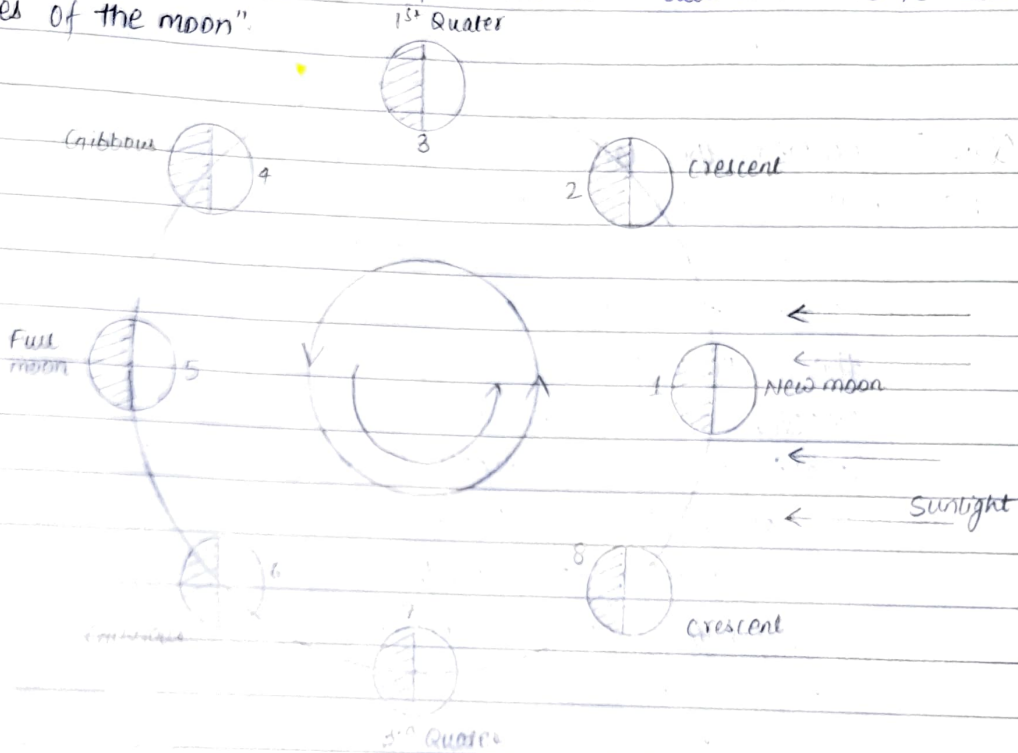 es of the moon".
1st Quater
3
Gibbous
4
2
Crescent
Full
moon
5
1
New moon
Sunlight
6
8
Crescent
7
3rd Quater